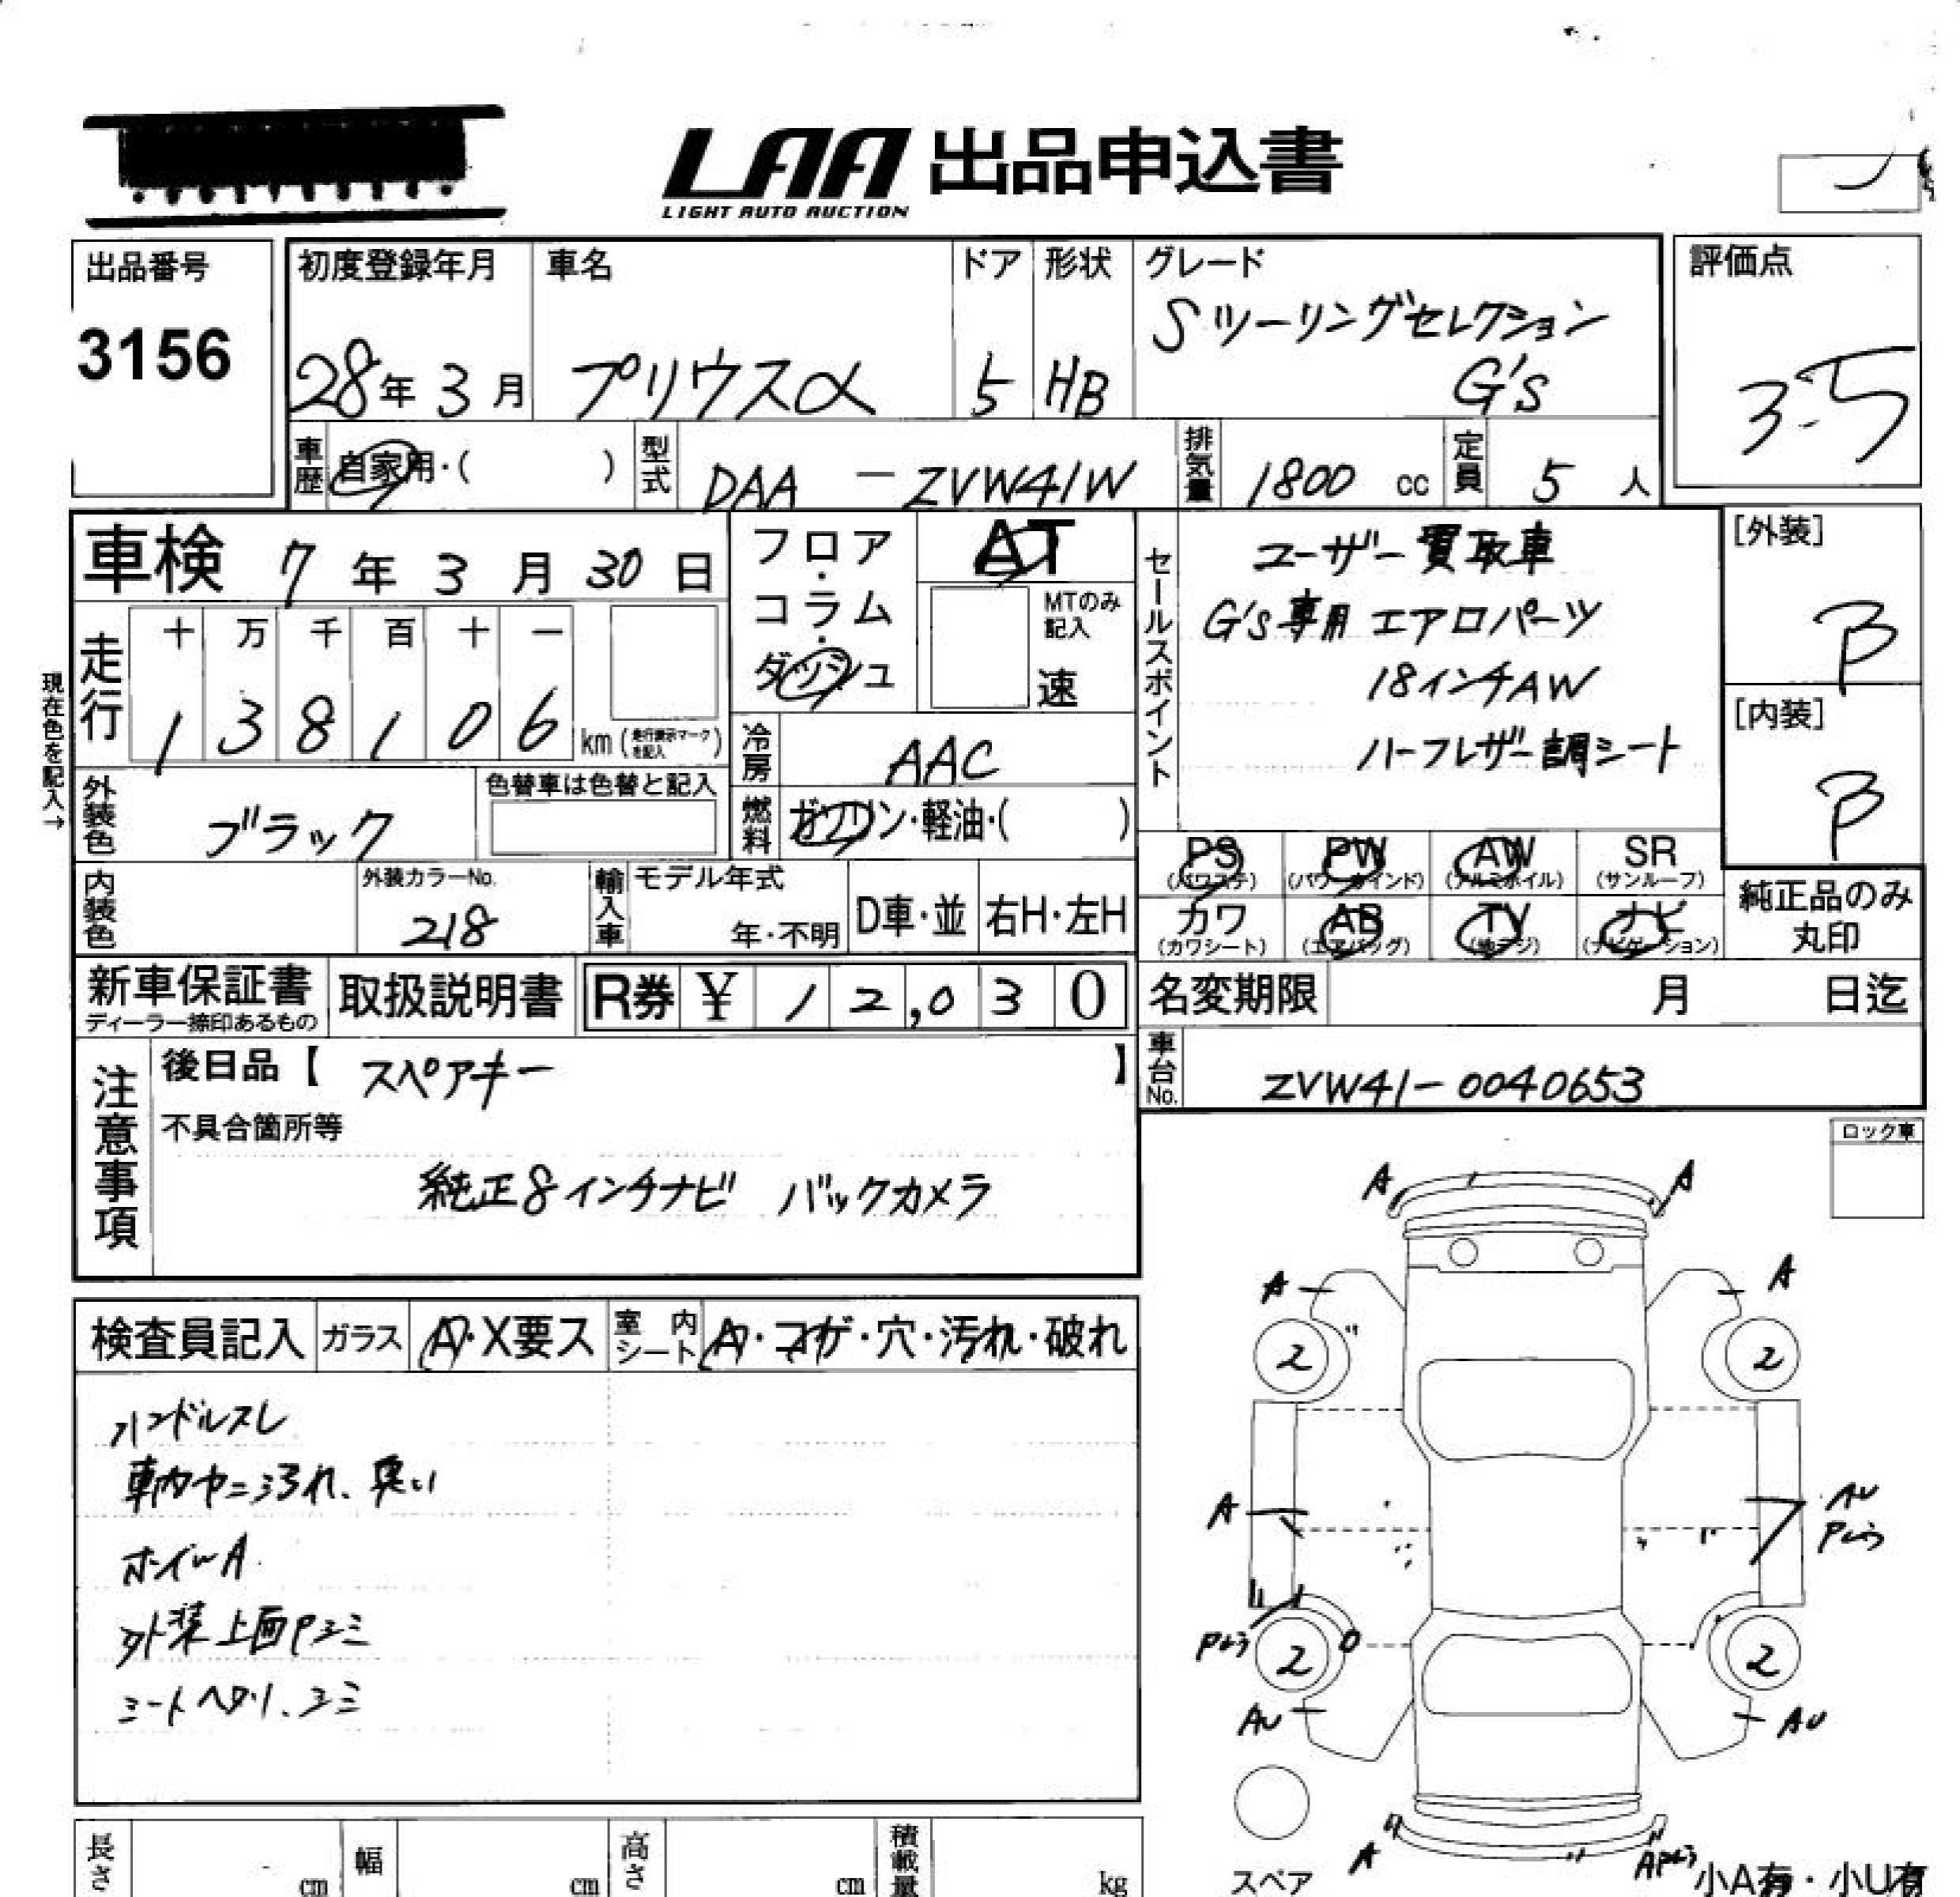 LAA 出品申込書
LIGHT AUTO AUCTION
出品番号
3156
初度登録年月
28年 3月
車名
プリウスα
ドア
5
形状
HB
グレード
Sツーリングセレクション
G's
評価点
3.5
車歴
自家用・( )
型式
DAA - ZVW41W
排気量
1800 cc
定員
5 人
車検 7年 3月 30日
フロア・コラム・ダッシュ
AT
MTのみ記入
速
走行
十 万 千 百 十 一
1 3 8 1 0 6 km (走行表示マークを記入)
現在色を記入→
冷房
AAC
外装色
ブラック
色替車は色替と記入
燃料
ガソリン・軽油・( )
内装色
外装カラーNo.
218
輸入車
モデル年式
年・不明
D車・並
右H・左H
セールスポイント
ユーザー買取車
G's専用エアロパーツ
18インチAW
ハーフレザー調シート
[外装]
B
[内装]
B
PS
(パワステ)
PW
(パワーウインド)
AW
(アルミホイル)
SR
(サンルーフ)
カワ
(カワシート)
AB
(エアバッグ)
TV
(地デジ)
ナビ
(ナビゲーション)
純正品のみ
丸印
新車保証書
ディーラー捺印あるもの
取扱説明書
R券 ¥ 12,030
名変期限 月 日迄
車台No.
ZVW41-0040653
注意事項
後日品【 スペアキー 】
不具合箇所等
純正8インチナビ バックカメラ
ロック車
検査員記入
ガラス
A・X要ス
室内シート
A・コゲ・穴・汚れ・破れ
ハンドルスレ
車内ヤニ汚れ、臭い
ホイルA
外装上面Pシミ
シートヘタリ、シミ
A A
A A
2 2
A
AU
P
2 2
AU AU
A
スペア
小A有・小U有
長さ cm
幅 cm
高さ cm
積載量 kg